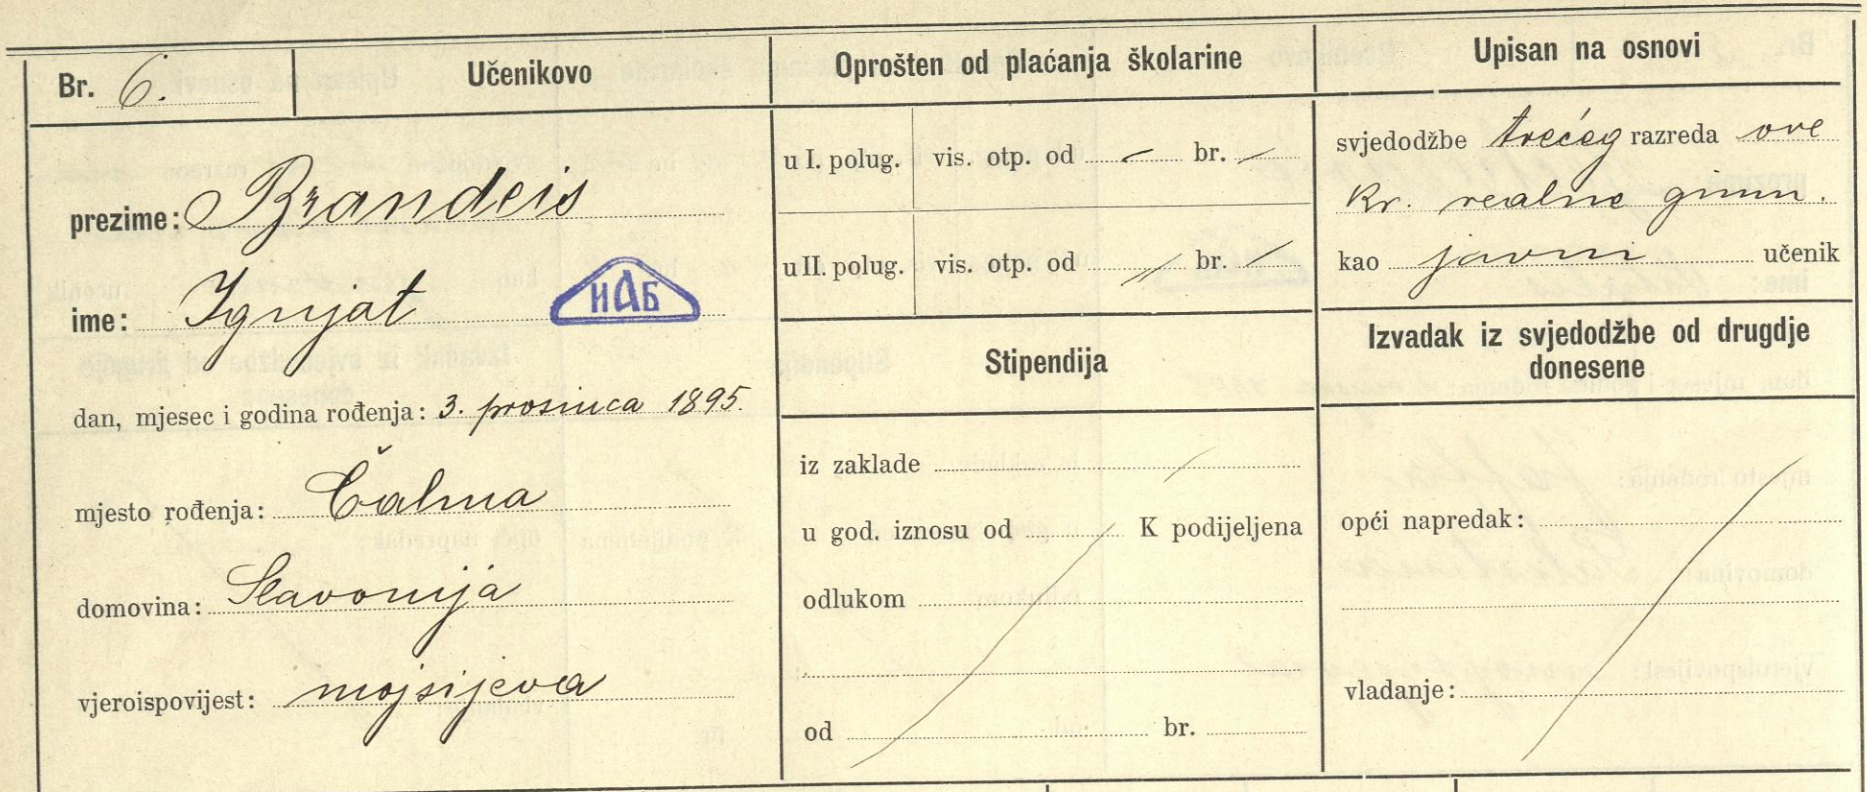 Br. 6.
Učenikovo
prezime: Brandeis
ime: Ignjat
ИАБ
dan, mjesec i godina rođenja: 3. prosinca 1895.
mjesto rođenja: Čalma
domovina: Slavonija
vjeroispovijest: mojsijeva
Oprošten od plaćanja školarine
u I. polug. vis. otp. od — br. —
u II. polug. vis. otp. od br.
Stipendija
iz zaklade
u god. iznosu od K podijeljena
odlukom
od br.
Upisan na osnovi
svjedodžbe trećeg razreda ove
kr. realne gimn.
kao javni učenik
Izvadak iz svjedodžbe od drugdje
donesene
opći napredak:
vladanje: